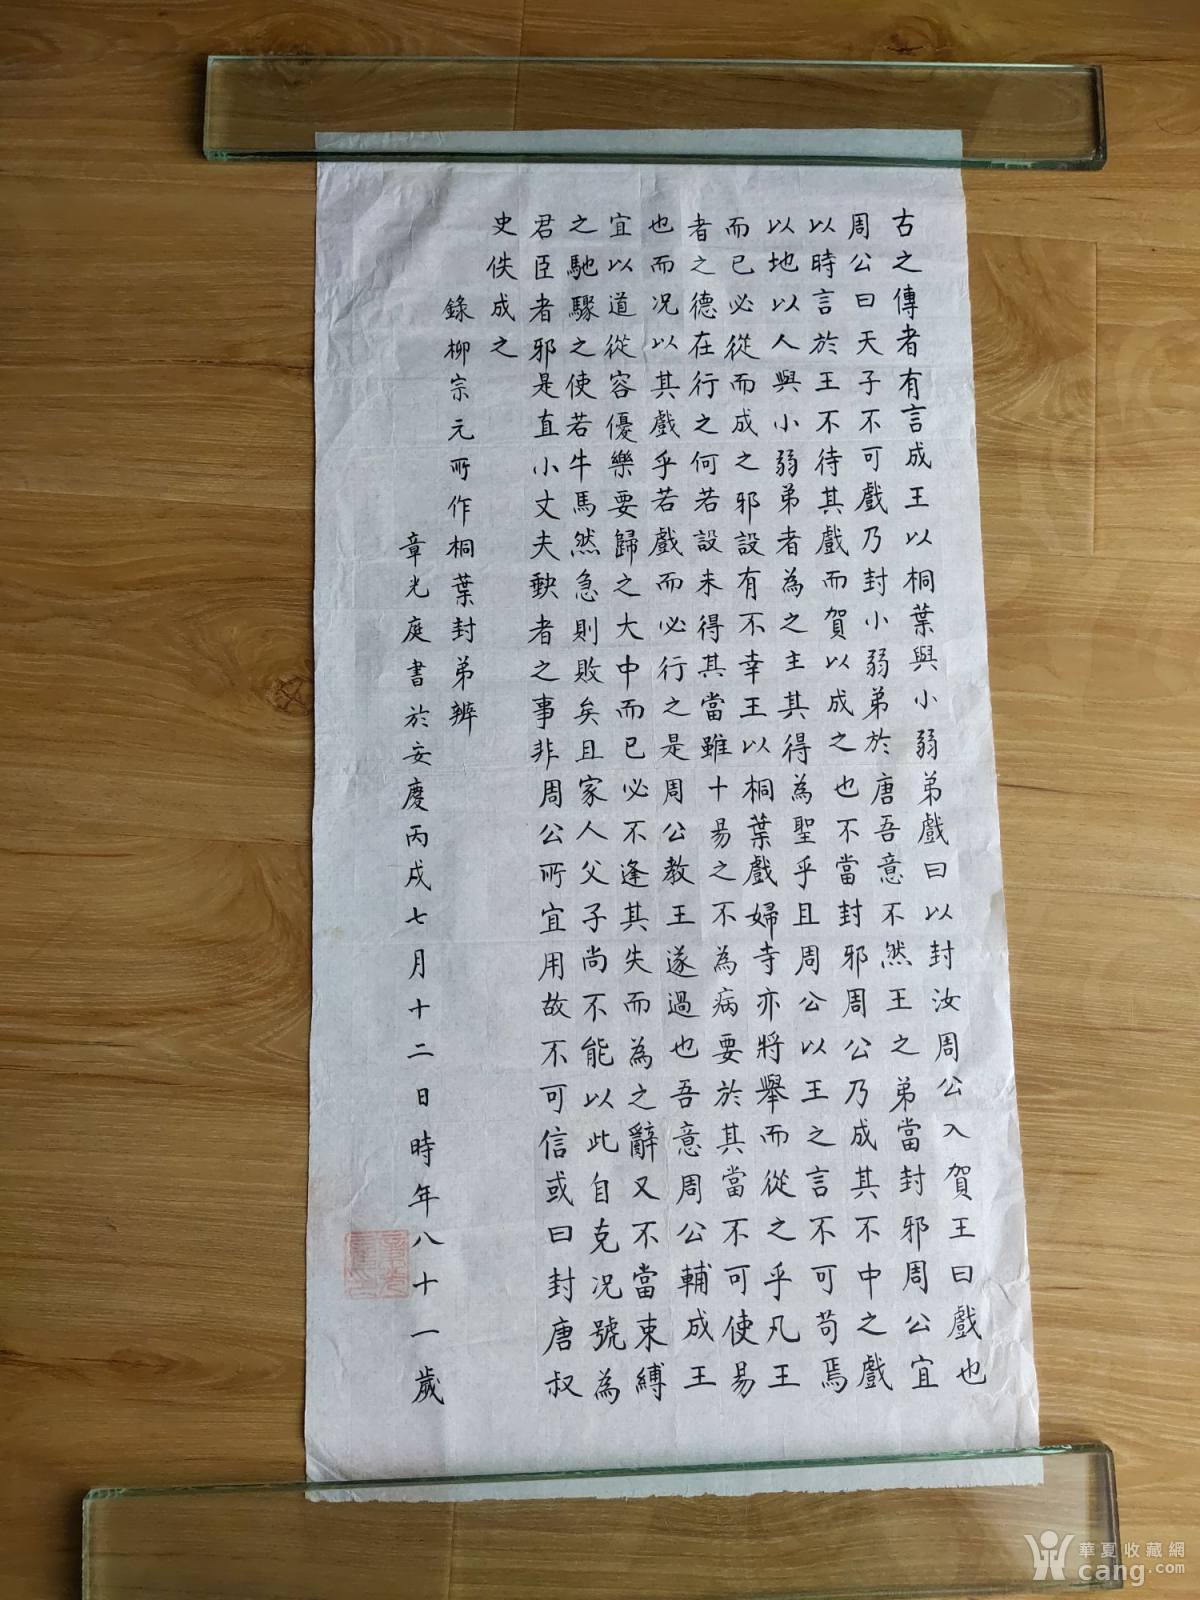 古之傳者有言成王以桐葉與小弱弟戲曰以封汝周公入賀王曰戲也
周公曰天子不可戲乃封小弱弟於唐吾意不然王之弟當封邪周公宜
以時言於王不待其戲而賀以成之也不當封邪周公乃成其不中之戲
以地以人與小弱弟者為之主其得為聖乎且周公以王之言不可苟焉
而已必從而成之邪設有不幸王以桐葉戲婦寺亦將舉而從之乎凡王
者之德在行之何若設未得其當雖十易之不為病要於其當不可使易
也而况以其戲乎若戲而必行之是周公教王遂過也吾意周公輔成王
宜以道從容優樂要歸之大中而已必不逢其失而為之辭又不當束縛
之馳驟之使若牛馬然急則敗矣且家人父子尚不能以此自克况號為
君臣者邪是直小丈夫者之事非周公所宜用故不可信或曰封唐叔
史佚成之
錄柳宗元所作桐葉封弟辨
章光庭書於安慶丙戌七月十二日時年八十一歲
華夏收藏網
cang.com